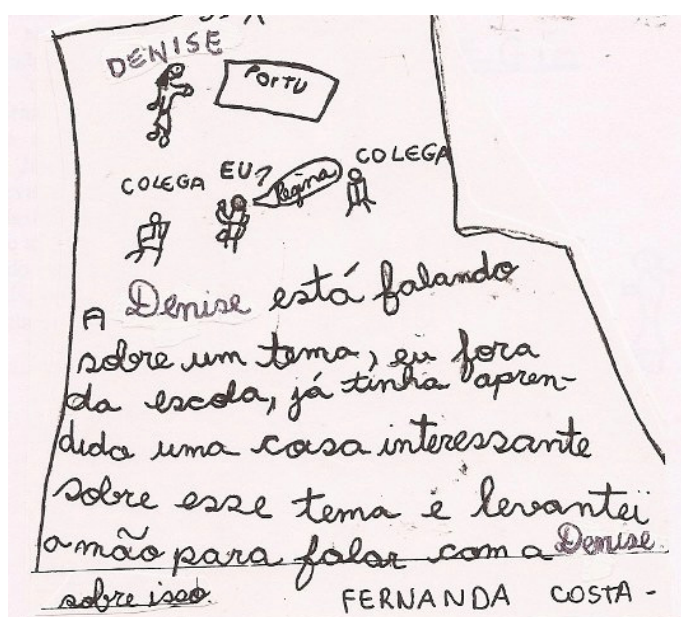 DENISE
PORTU
COLEGA EU? Regina COLEGA
A Denise está falando
sobre um tema, eu fora
da escola, já tinha apren-
dido uma coisa interessante
sobre esse tema e levantei
a mão para falar com a Denise
sobre isso.
FERNANDA COSTA -